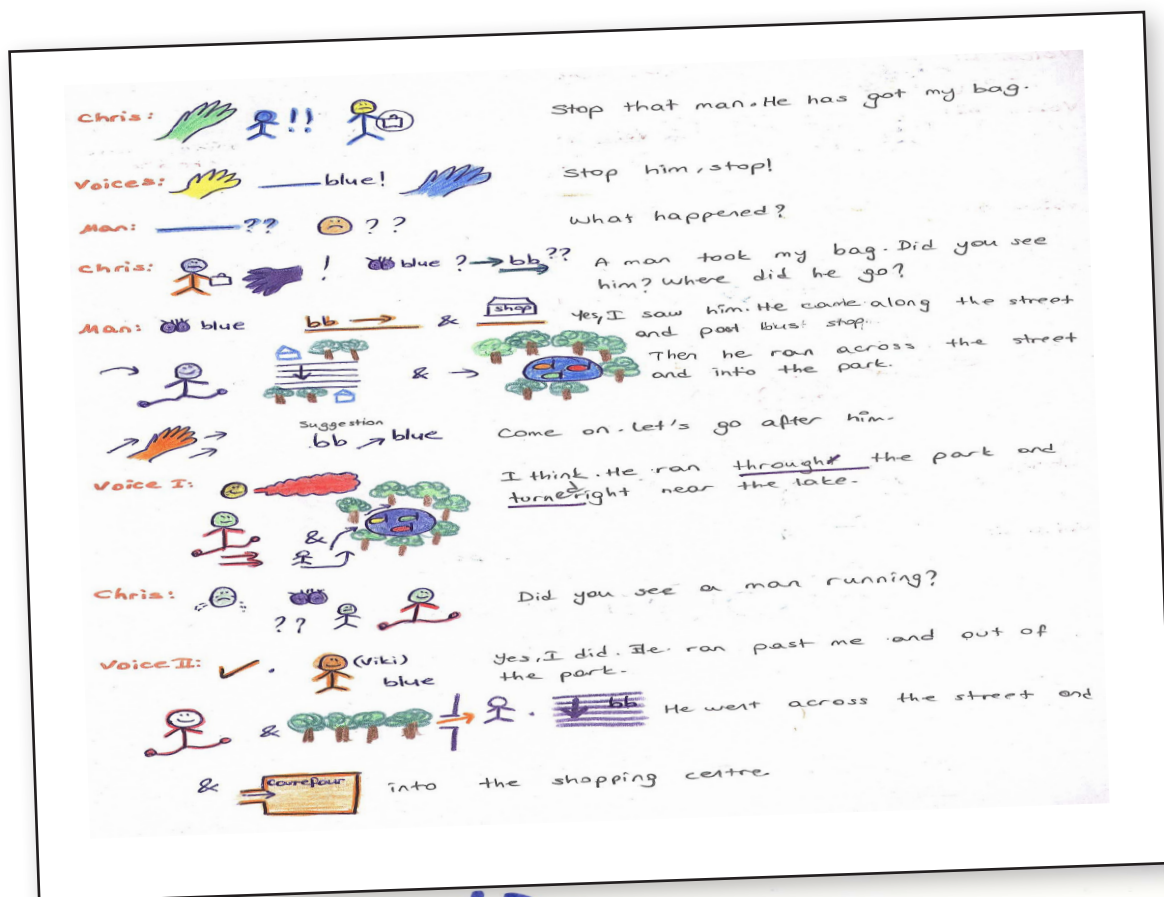 Chris: !! Stop that man. He has got my bag.
Voices: blue! Stop him, stop!
Man: ?? ?? What happened?
Chris: ! blue ? → bb ?? A man took my bag. Did you see
him? Where did he go?
Man: blue bb → & shop Yes, I saw him. He came along the street
and past bus stop.
& → Then he ran across the street
and into the park.
Suggestion
bb → blue Come on. Let's go after him.
Voice I: I think. He ran throught the park and
turned right near the lake.
&
Chris: ?? Did you see a man running?
Voice II: ✓. (Viki) Yes, I did. He ran past me and out of
blue the park.
& . bb He went across the street and
& carrefour into the shopping centre.